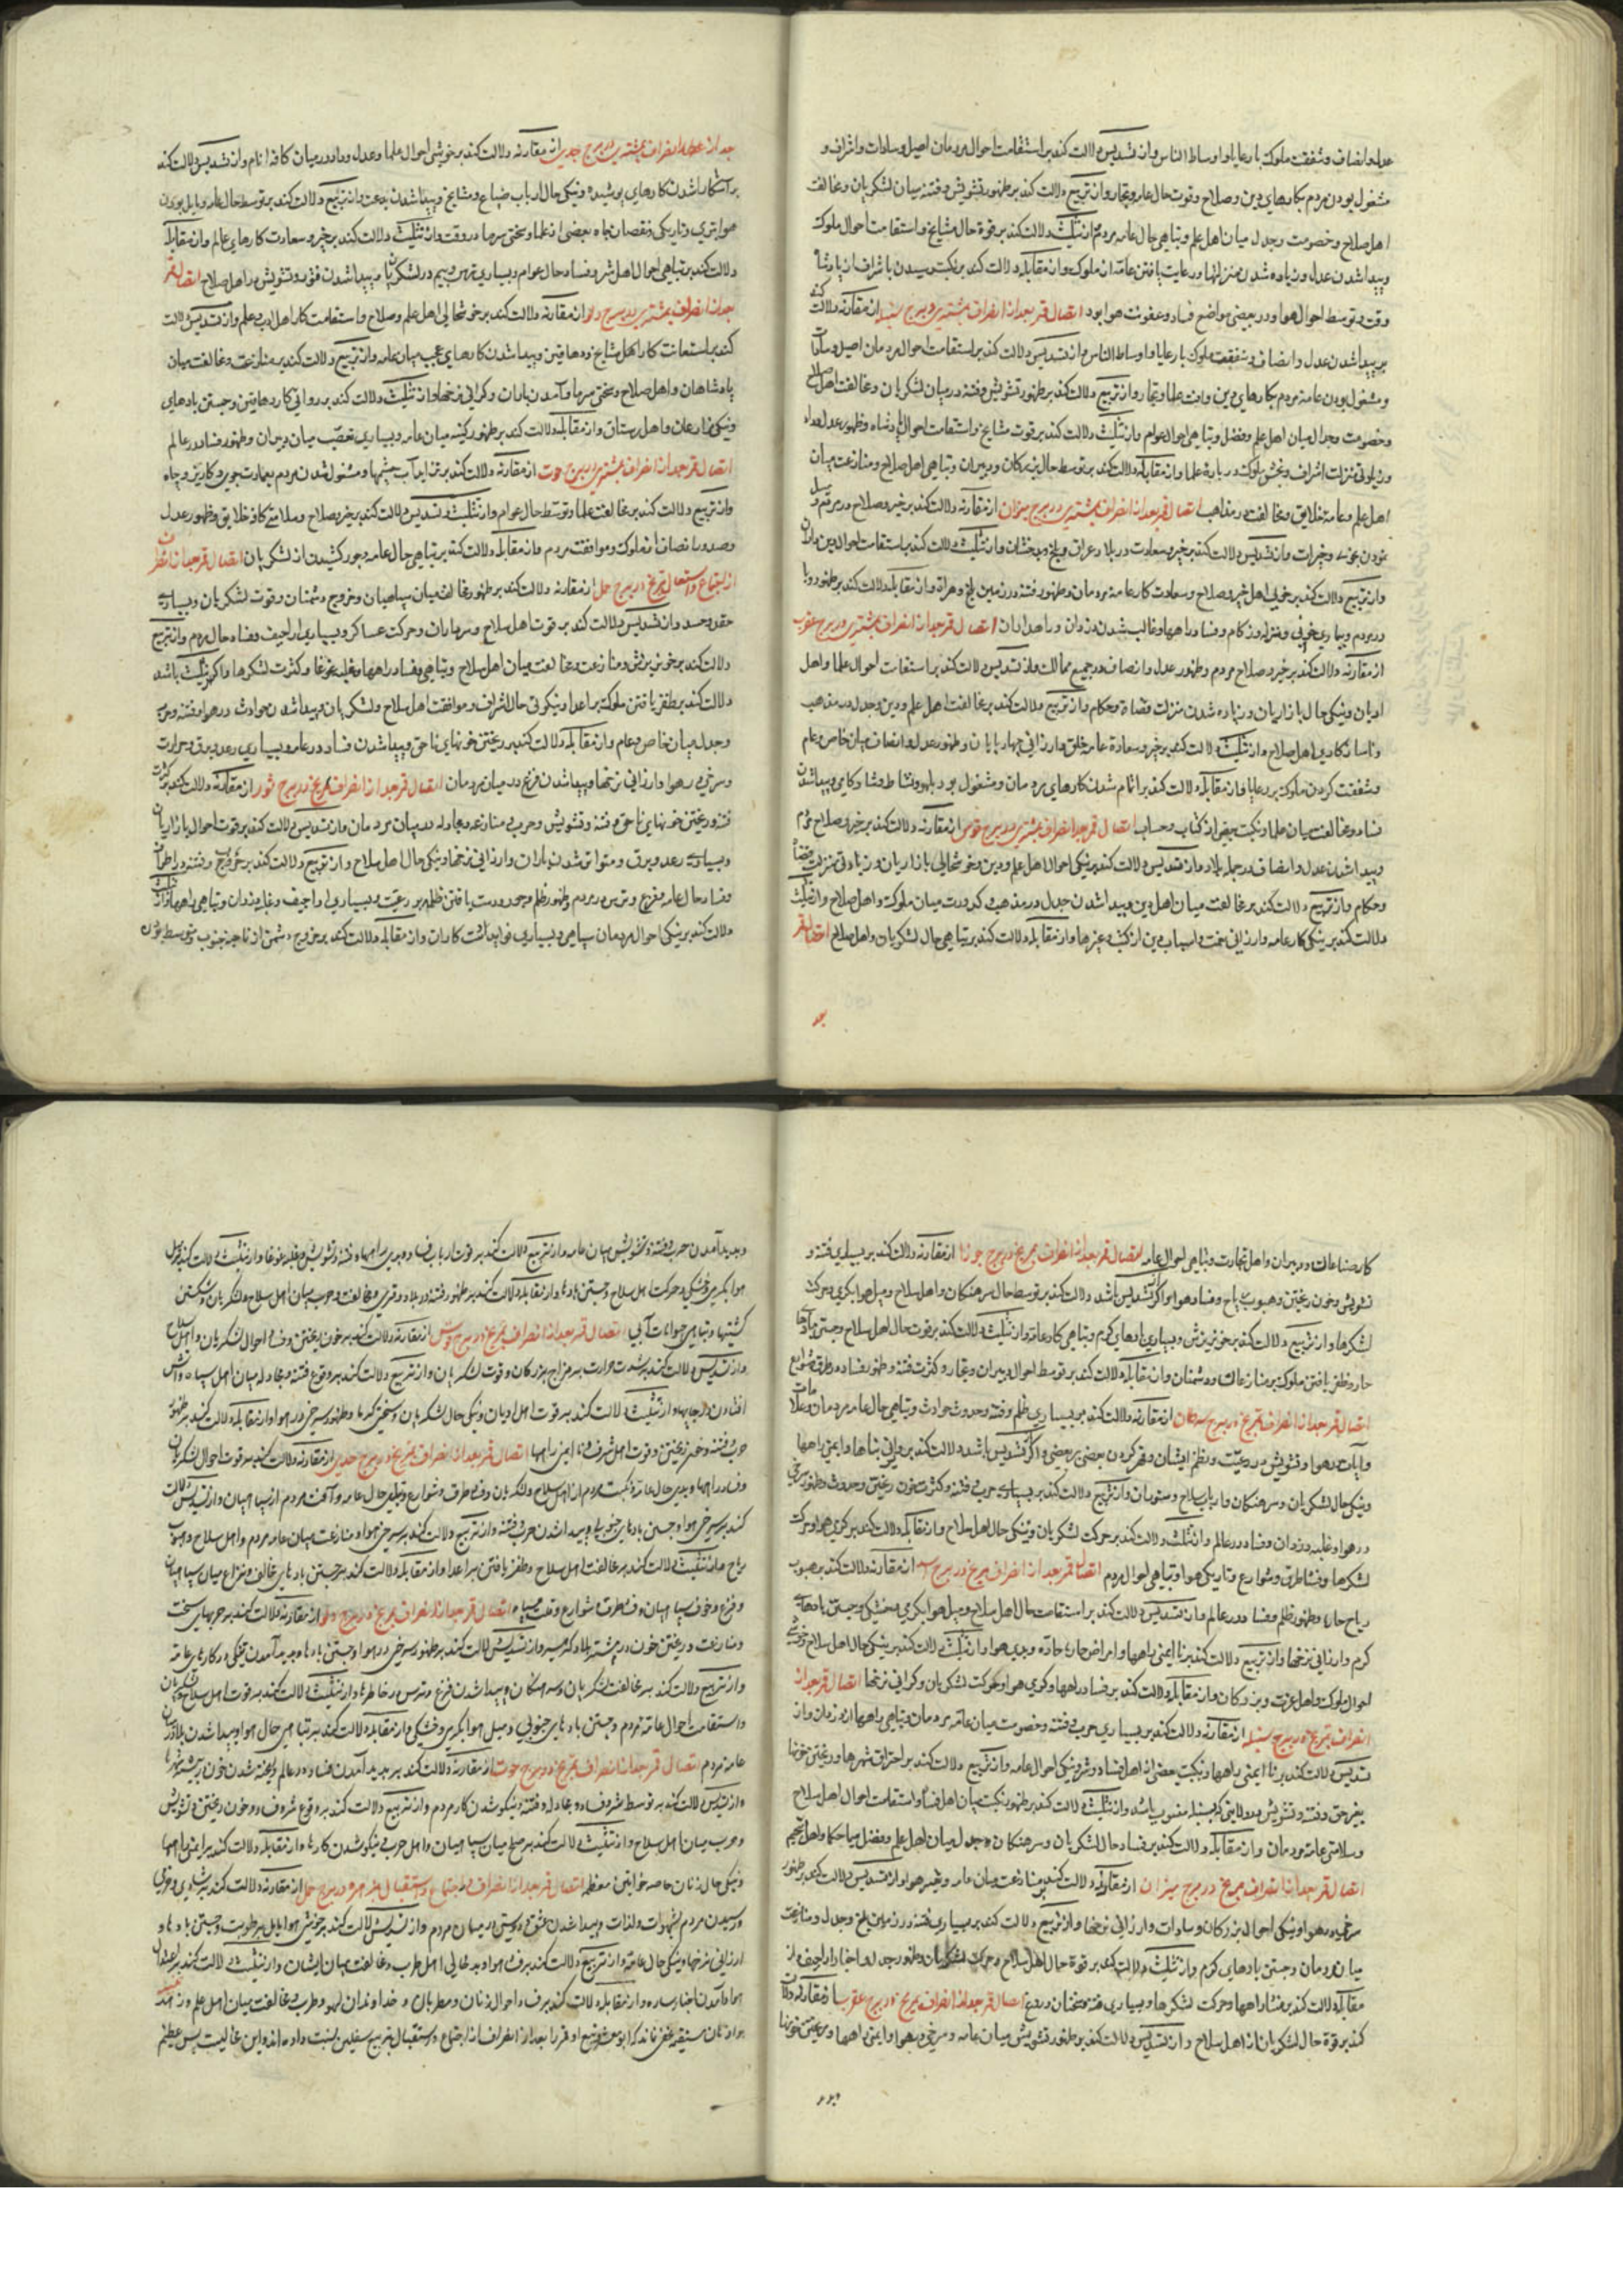 عدل و انصاف و شفقت ملوک با رعایا و اوساط الناس و از تسدیس دلالت کند بر استقامت احوال مردمان اصیل و سادات و اشراف و
مشغول بودن مردم بکارهای دین و صلاح و قوت حال عامه و تجار و از تربیع دلالت کند بر ظهور تشویش و فتنه میان لشکریان و مخالفت
اهل صلاح و خصومت و جدل میان اهل علم و تباهی حال عامه مردم و از تثلیث دلالت کند بر قوة حال مشایخ و استقامت احوال ملوک
و پیدا شدن عدل و زیاده شدن منزلتها و رعایت یافتن عامه از ملوک و از مقابله دلالت کند بر نکبت رسیدن باشراف از پادشاه
وقت و توسط احوال هوا و در بعضی مواضع فساد و عفونت هوا بود اتصال قمر بعد از انصراف بمشتری در برج سنبله از مقارنه دلالت کند
بر پیدا شدن عدل و انصاف و شفقت ملوک با رعایا و اوساط الناس و از تسدیس دلالت کند بر استقامت احوال مردمان اصیل و سادات
و مشغول بودن عامه مردم بکارهای دین و تجار و از تربیع دلالت کند بر ظهور تشویش و فتنه در میان لشکریان و مخالفت اهل صلاح
و خصومت و جدال میان اهل علم و فضل و تباهی احوال عوام و از تثلیث دلالت کند بر قوت مشایخ و استقامت احوال پادشاه و ظهور عدل و داد
منزلت اشراف و بخشش ملوک در باره علما و از مقابله دلالت کند بر توسط حال بزرکان و دبیران و تباهی اهل صلاح و منازعت میان
اهل علم و عامه خلایق و مخالفت در مذاهب اتصال قمر بعد از انصراف بمشتری در برج میزان از مقارنه دلالت کند بر خیر و صلاح
و خیرات و از تسدیس دلالت کند بر خیر و سعادت در بلاد عراق و بلخ و بدخشان و از تثلیث دلالت کند بر استقامت احوال
و از تربیع دلالت کند بر خوبی اهل خیر و صلاح و سعادت کار عامه مردمان و ظهور فتنه در زمین بلخ و هراة و از مقابله دلالت کند بر ظهور وبا
در مردم و بیماری و زکام و فساد راهها و غالب شدن دزدان و راهداران اتصال قمر بعد از انصراف بمشتری در برج عقرب
از مقارنه دلالت کند بر خیر و صلاح مردم و ظهور عدل و انصاف در جمیع ممالک و از تسدیس دلالت کند بر استقامت احوال علما و اهل
ادیان و نیکی حال بازاریان و زیاده شدن منزلت قضاة و حکام و از تربیع دلالت کند بر مخالفت اهل علم و دین و جدل در مذهب
و ناسازکاری اهل صلاح و از تثلیث دلالت کند بر خیر و سعادة عامه خلق و ارزانی چهارپایان و ظهور عدل و انصاف میان خاص و عام
و شفقت کردن ملوک بر رعایا و از مقابله دلالت کند بر اتمام شدن کارهای مردمان و مشغول بودن بلهو و نشاط و پیدا شدن
فساد و مخالفت میان علما و نکبت بعضی از کتاب و حساب اتصال قمر بعد از انصراف بمشتری در برج قوس از مقارنه دلالت کند بر خیر و صلاح مردم
و پیدا شدن عدل و انصاف در جمله بلاد و از تسدیس دلالت کند بر نیکی احوال اهل علم و دین و خوشحالی بازاریان و زیادتی منزلت قضاة
و حکام و از تربیع دلالت کند بر مخالفت میان اهل دین و پیدا شدن جدل در مذهب و کدورت میان ملوک و اهل صلاح و از تثلیث
دلالت کند بر نیکی کار عامه و ارزانی و از مقابله دلالت کند بر تباهی حال لشکریان و اهل صلاح اتصال قمر
بعد
بعد از انصراف بمشتری در برج جدی از مقارنه دلالت کند بر خوشی احوال علما و عدل و داد در میان کافه انام و از تسدیس دلالت کند
بر آشکارا شدن کارهای پوشیده و نیکی حال ارباب ضیاع و مشایخ و پیدا شدن بدعت و از تربیع دلالت کند بر توسط حال عامه و مایل بودن
هوا بتری و تاریکی و نقصان جاه بعضی از علما و سختی سرما در وقت و از تثلیث دلالت کند بر خیر و سعادت کارهای عالم و از مقابله
دلالت کند بر تباهی احوال اهل شر و فساد حال عوام و بسیاری ترس و بیم در لشکریان و پیدا شدن فتنه و تشویش در اهل صلاح اتصال قمر
بعد از انصراف بمشتری در برج دلو از مقارنه دلالت کند بر خوشحالی اهل علم و صلاح و استقامت کار اهل ادب و علم و از تسدیس دلالت
کند بر استعانت کار اهل مشایخ و دهاقین و پیدا شدن کارهای عجب میان عامه و از تربیع دلالت کند بر منازعت و مخالفت میان
پادشاهان و اهل صلاح و سختی سرما و آمدن باران و کرانی نرخها و از تثلیث دلالت کند بر روانی کارها و جستن بادهای
و نیکی مزارعان و اهل رستاق و از مقابله دلالت کند بر ظهور کینه میان عامه و بسیاری تعصب میان دبیران و ظهور فساد در عالم
اتصال قمر بعد از انصراف بمشتری در برج حوت از مقارنه دلالت کند بر تزاید آب چشمها و مشغول شدن مردم بعمارت جوی و کاریز و چاه
و از تربیع دلالت کند بر مخالفت علما و توسط حال عوام و از تثلیث و تسدیس دلالت کند بر خیر و صلاح و سلامتی کافه خلایق و ظهور عدل
از ملوک و موافقت مردم و از مقابله دلالت کند بر تباهی حال عامه و جور کشیدن از لشکریان اتصال قمر بعد از انصراف
از اجتماع و استقبال بمریخ در برج حمل از مقارنه دلالت کند بر ظهور مخالفت میان سپاهیان و خروج دشمنان و قوت لشکریان و بسیاری
حقد و حسد و از تسدیس دلالت کند بر قوت اهل سلاح و سرداران و حرکت عساکر و بسیاری اراجیف و فساد حال مردم و از تربیع
دلالت کند بر خونریزش و منازعت و مخالفت میان اهل سلاح و تباهی و فساد راهها و غلبه غوغا و کثرت لشکرها و اکر تثلیث باشد
دلالت کند بر ظفر یافتن ملوک بر اعدا و نیکوئی حال اشراف و موافقت اهل سلاح و لشکریان و پیدا شدن حوادث در هوا و فتنه و حرب
و جدل میان خاص و عام و از مقابله دلالت کند بر ریختن خونهای ناحق و پیدا شدن فساد در عامه و بسیاری رعد و برق و حرارت
و سرخی در هوا و ارزانی نرخها و پیدا شدن فزع در میان مردمان اتصال قمر بعد از انصراف بمریخ در برج ثور از مقارنه دلالت کند بر کثرت
فتنه و ریختن خونهای ناحق و فتنه و تشویش و حرب و منازعه و مجادله در میان مردمان و از تسدیس دلالت کند بر قوت احوال بازاریان
و بسیاری رعد و برق و متواتر شدن باران و ارزانی نرخها و نیکی حال اهل سلاح و از تربیع دلالت کند بر خروج و فتنه
و فساد حال عامه و فزع و ترس در مردم و ظهور ظلم و جور و دست یافتن ظلمه بر رعیت و بسیاری اراجیف و غلبه دزدان و تباهی راهها و از تثلیث
دلالت کند بر نیکی احوال مردمان سپاهی و بسیاری فواید کشت کاران و از مقابله دلالت کند بر خروج دشمن از ناحیه جنوب و متوسط بودن
کار صناعات و دبیران و اهل تجارت و تباهی احوال عامه اتصال قمر بعد از انصراف بمریخ در برج جوزا از مقارنه دلالت کند بر بسیاری فتنه و
تشویش و خون ریختن و هبوب ریاح و فساد هوا و اکر تسدیس باشد دلالت کند بر توسط حال سرهنکان و اهل سلاح و میل هوا بکرمی و حرکت
لشکرها و از تربیع دلالت کند بر خونریزش و بسیاری بادهای کرم و تباهی کار عامه و از تثلیث دلالت کند بر قوت حال اهل سلاح و جستن بادها
حاره و ظفر یافتن ملوک بر منازعان و دشمنان و از مقابله دلالت کند بر توسط احوال دبیران و تجار و کثرت فتنه و ظهور فساد در طرق و شوارع
اتصال قمر بعد از انصراف بمریخ در برج سرطان از مقارنه دلالت کند بر بسیاری ظلم و فتنه و حدوث حوادث و تباهی حال عامه مردمان و علامات
و آیات در هوا و تشویش در رعیت و ظلم ایشان و قهر کردن بعضی بر بعضی و اکر تسدیس باشد دلالت کند بر ویرانی بناها و ایمنی راهها
و نیکی حال لشکریان و سرهنکان و ارباب سلاح و ستوران و از تربیع دلالت کند بر بسیاری حرب و فتنه و کثرت خون ریختن و حدوث و ظهور سرخی
در هوا و غلبه دزدان و فساد در عالم و از تثلیث دلالت کند بر حرکت لشکریان و نیکی حال اهل سلاح و از مقابله دلالت کند بر کرمی هوا و حرکت
لشکرها و فساد طرق و شوارع و تاریکی هوا و تباهی احوال مردم اتصال قمر بعد از انصراف بمریخ در برج اسد از مقارنه دلالت کند بر هبوب
ریاح حاره و ظهور ظلم و فساد در عالم و از تسدیس دلالت کند بر استقامت حال اهل سلاح و میل هوا بکرمی و خشکی و جستن بادهای
کرم و ارزانی نرخها و از تربیع دلالت کند بر نا ایمنی راهها و امراض حاره حاده و بدی هوا و از تثلیث دلالت کند بر نیکی حال اهل سلاح و خوشی
احوال ملوک و اهل عزت و بزرکان و از مقابله دلالت کند بر فساد راهها و کرمی هوا و حرکت لشکریان و کرانی نرخها اتصال قمر بعد از
انصراف بمریخ در برج سنبله از مقارنه دلالت کند بر بسیاری حرب و فتنه و خصومت میان عامه مردمان و تباهی راهها از دزدان و از
تسدیس دلالت کند بر نا ایمنی راهها و نکبت بعضی از اهل فساد و شر و نیکی احوال عامه و از تربیع دلالت کند بر احتراق شهرها و ریختن خونها
بغیر حق و فتنه و تشویش در ولایتی که بسنبله منسوب باشد و از تثلیث دلالت کند بر ظهور نکبت میان اهل فساد و استقامت احوال اهل سلاح
و سلامتی عامه مردمان و از مقابله دلالت کند بر فساد حال لشکریان و سرهنکان و جدل میان اهل علم و فضل و مباحثه حکما و اهل تنجیم
اتصال قمر بعد از انصراف بمریخ در برج میزان از مقارنه دلالت کند بر منازعت میان عامه و تغیر هوا و از تسدیس دلالت کند بر ظهور
سرخی در هوا و نیکی احوال بزرکان و سادات و ارزانی نرخها و از تربیع دلالت کند بر بسیاری فتنه در زمین بلخ و جدل و منازعت
میان مردمان و جستن بادهای کرم و از تثلیث دلالت کند بر قوة حال اهل سلاح و حرکت لشکریان و ظهور جدل و اخبار اراجیف و از
مقابله دلالت کند بر فساد راهها و حرکت لشکرها و بسیاری فتنه و سخنان دروغ اتصال قمر بعد از انصراف بمریخ در برج عقرب از مقارنه دلالت
کند بر قوة حال لشکریان از اهل سلاح و از تسدیس دلالت کند بر ظهور تشویش میان عامه و سرخی در هوا و ایمنی راهها و ریختن خونها
و پدید
و پدید آمدن حرب و فتنه و تشویش میان عامه و از تربیع دلالت کند بر قوت ارباب فساد و بدی راهها و فتنه و تشویش و غلبه غوغا و از تثلیث دلالت کند بر میل
هوا بکرمی و خشکی و حرکت اهل سلاح و جستن بادها و از مقابله دلالت کند بر ظهور فتنه در بلاد و قری و مخالفت و حرب میان اهل سلاح و لشکریان و شکستن
کشتیها و تباهی حیوانات آبی اتصال قمر بعد از انصراف بمریخ در برج قوس از مقارنه دلالت کند بر خون ریختن و فساد احوال لشکریان و اهل سلاح
و از تسدیس دلالت کند بر شدت حرارت بر مزاج بزرکان و قوت لشکریان و از تربیع دلالت کند بر وقوع فتنه و مجادله میان اهل سپاه و آتش
افتادن در جایها و از تثلیث دلالت کند بر قوت اهل ادیان و نیکی حال لشکریان و سختی کرما و ظهور سرخی در هوا و از مقابله دلالت کند بر ظهور
حرب و فتنه و خون ریختن و قوت اهل شرف و نا ایمنی راهها اتصال قمر بعد از انصراف بمریخ در برج جدی از مقارنه دلالت کند بر قوت احوال لشکریان
و فساد راهها و بدی حال عامه و نکبت مردم از اهل سلاح و لشکریان و فساد طرق و شوارع و تباهی حال عامه و آفت مردم از سپاهیان و از تسدیس دلالت
کند بر سرخی هوا و جستن بادهای جنوبی و پیدا شدن حرب و فتنه و از تربیع دلالت کند بر سرخی هوا و منازعت میان عامه مردم و اهل سلاح و هبوب
ریاح و از تثلیث دلالت کند بر مخالفت اهل سلاح و ظفر یافتن بر اعدا و از مقابله دلالت کند بر جستن بادهای مخالف و نزاع میان سپاهیان
و فزع و خوف سپاهیان و فساد طرق و شوارع اتصال قمر بعد از انصراف بمریخ در برج دلو از مقارنه دلالت کند بر حربهای سخت
و منازعت و ریختن خون در بیشتر بلاد کرمسیر و از تسدیس دلالت کند بر ظهور سرخی در هوا و جستن بادها و پدید آمدن تنکی در کارهای عامه
و از تربیع دلالت کند بر مخالفت لشکریان و سرهنکان و پیدا شدن فزع و ترس در خاطرها و از تثلیث دلالت کند بر قوت اهل سلاح و لشکریان
و استقامت احوال عامه مردم و جستن بادهای جنوبی و میل هوا بکرمی و خشکی و از مقابله دلالت کند بر تباهی حال هوا و پیدا شدن
عامه مردم اتصال قمر بعد از انصراف بمریخ در برج حوت از مقارنه دلالت کند بر پدید آمدن فساد در عالم و ریخته شدن خون در بیشتر شهرها
و از تسدیس دلالت کند بر توسط شر و فساد و مجادله و فتنه و نیکو شدن کار مردم و از تربیع دلالت کند بر وقوع شر و فساد و خون ریختن و تشویش
و حرب میان اهل سلاح و از تثلیث دلالت کند بر صلح میان سپاهیان و اهل حرب و نیکو شدن کارها و از مقابله دلالت کند بر ایمنی راهها
و نیکی حال زنان خاصه خواتین معظمه اتصال قمر بعد از انصراف از اجتماع و استقبال بزهره در برج حمل از مقارنه دلالت کند بر شادی و خوبی
و رسیدن مردم بشهوات و لذات و پیدا شدن عشق و دوستی در میان مردم و از تسدیس دلالت کند بر خوشی هوا مایل برطوبت و جستن بادها و
ارزانی نرخها و نیکی حال عامه و از تربیع دلالت کند بر فساد هوا و بدحالی اهل طرب و مخالفت میان ایشان و از تثلیث دلالت کند بر اعتدال
هوا و آمدن اخبار ساره و از مقابله دلالت کند بر فساد احوال زنان و مطربان و خداوندان لهو و طرب و مخالفت میان اهل علم
قمر را بعد از انصراف از اجتماع و استقبال